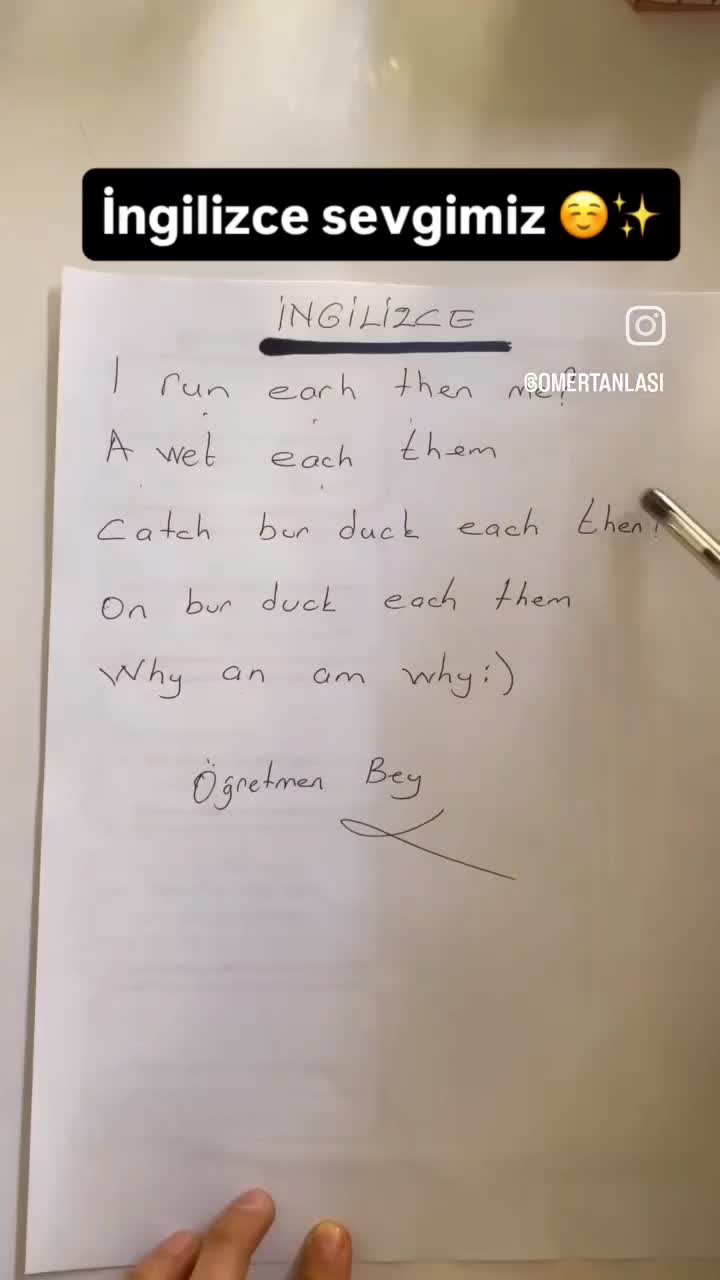 İngilizce sevgimiz ☺️✨
İNGİLİZCE
@OMERTANLASI
I run each then me?
A wet each them
Catch bur duck each then?
On bur duck each them
Why an am why:)
Öğretmen Bey